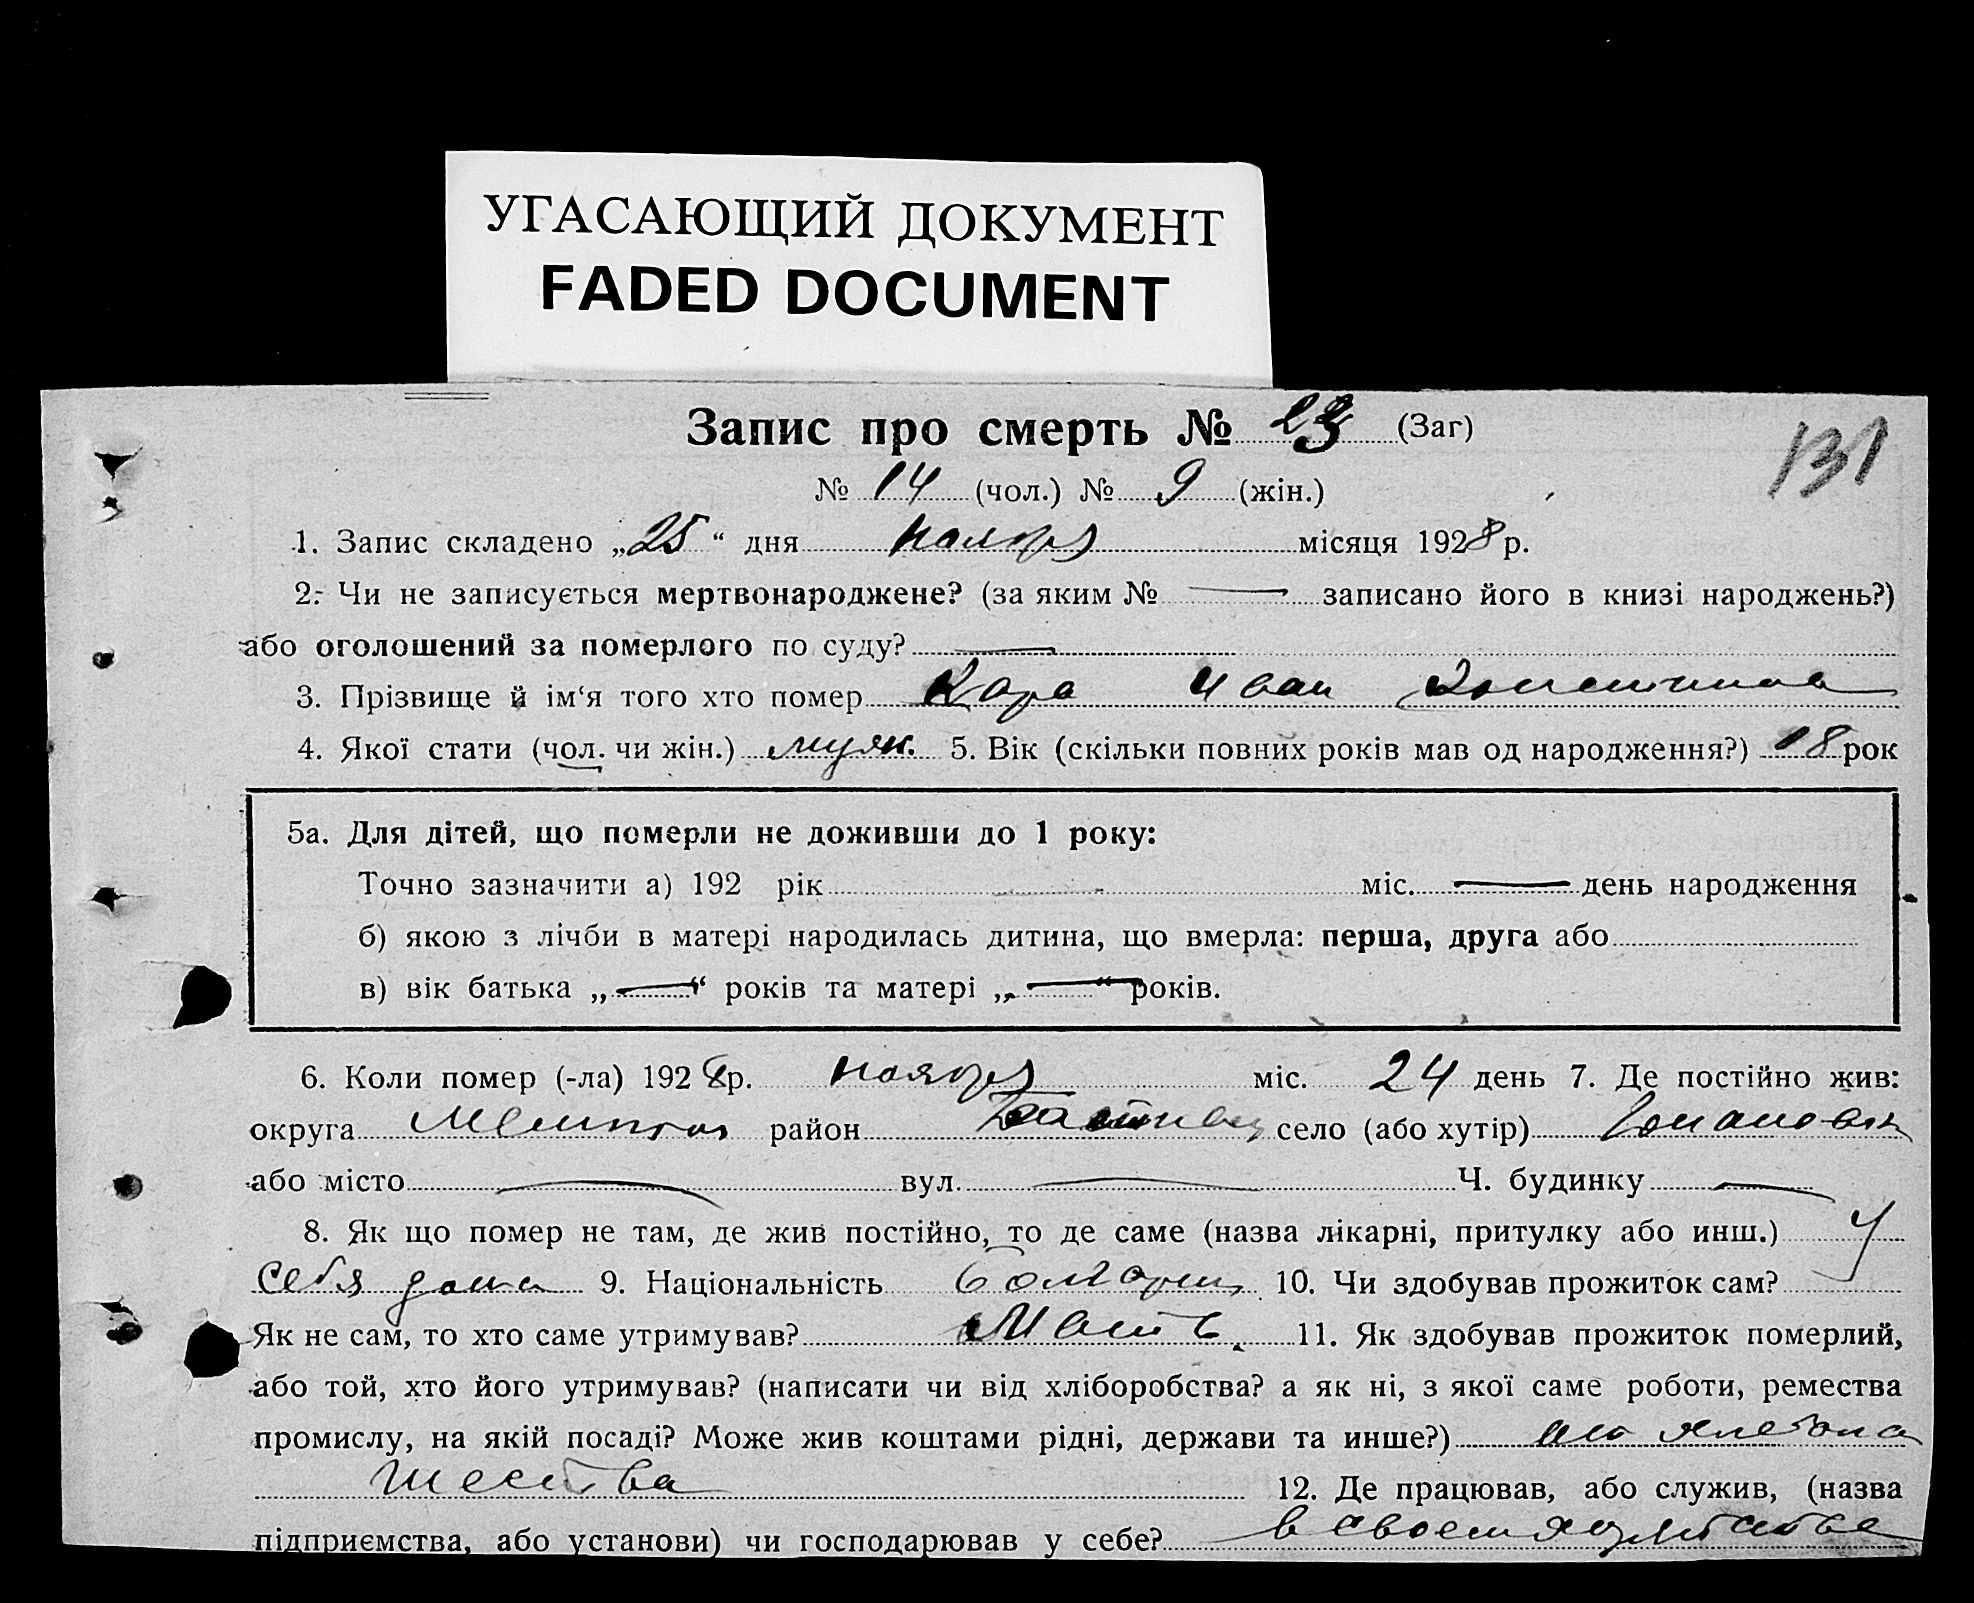 УГАСАЮЩИЙ ДОКУМЕНТ
FADED DOCUMENT
Запис про смерть № 23 (Заг)
131
№ 14 (чол.) № 9 (жін.)
1. Запис складено „25“ дня ноября місяця 1928 р.
2. Чи не записується мертвонароджене? (за яким № — записано його в книзі народжень?)
або оголошений за померлого по суду? —
3. Прізвище й ім‘я того хто помер Кара Иван
4. Якої стати (чол. чи жін.) муж. 5. Вік (скільки повних років мав од народження?) 18 рок
5а. Для дітей, що померли не доживши до 1 року:
Точно зазначити а) 192 рік міс. — день народження
б) якою з лічби в матері народилась дитина, що вмерла: перша, друга або
в) вік батька „—“ років та матері „—“ років.
6. Коли помер (-ла) 1928 р. ноября міс. 24 день 7. Де постійно жив:
округа район село (або хутір)
або місто — вул. — Ч. будинку —
8. Як що помер не там, де жив постійно, то де саме (назва лікарні, притулку або инш.) У
себя дома 9. Національність болгарин 10. Чи здобував прожиток сам?
Як не сам, то хто саме утримував? Мать 11. Як здобував прожиток померлий,
або той, хто його утримував? (написати чи від хліборобства? а як ні, з якої саме роботи, ремества
промислу, на якій посаді? Може жив коштами рідні, держави та инше?)
12. Де працював, або служив, (назва
підприємства, або установи) чи господарював у себе? в своем